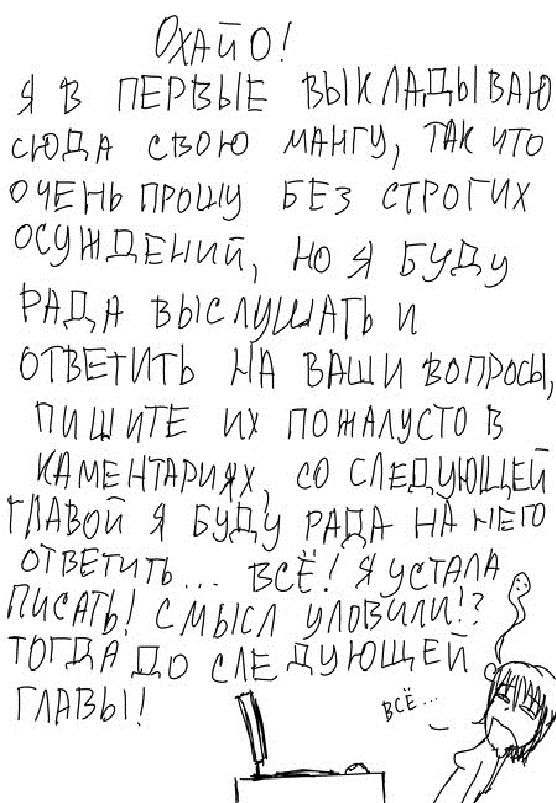 ОХАЙО!
Я В ПЕРВЫЕ ВЫКЛАДЫВАЮ
СЮДА СВОЮ МАНГУ, ТАК ЧТО
ОЧЕНЬ ПРОШУ БЕЗ СТРОГИХ
ОСУЖДЕНИЙ, НО Я БУДУ
РАДА ВЫСЛУШАТЬ И
ОТВЕТИТЬ НА ВАШИ ВОПРОСЫ,
ПИШИТЕ ИХ ПОЖАЛУСТО В
КАМЕНТАРИЯХ, СО СЛЕДУЮЩЕЙ
ГЛАВОЙ Я БУДУ РАДА НА НЕГО
ОТВЕТИТЬ... ВСЁ! Я УСТАЛА
ПИСАТЬ! СМЫСЛ УЛОВИЛИ!?
ТОГДА ДО СЛЕДУЮЩЕЙ
ГЛАВЫ!
ВСЁ...